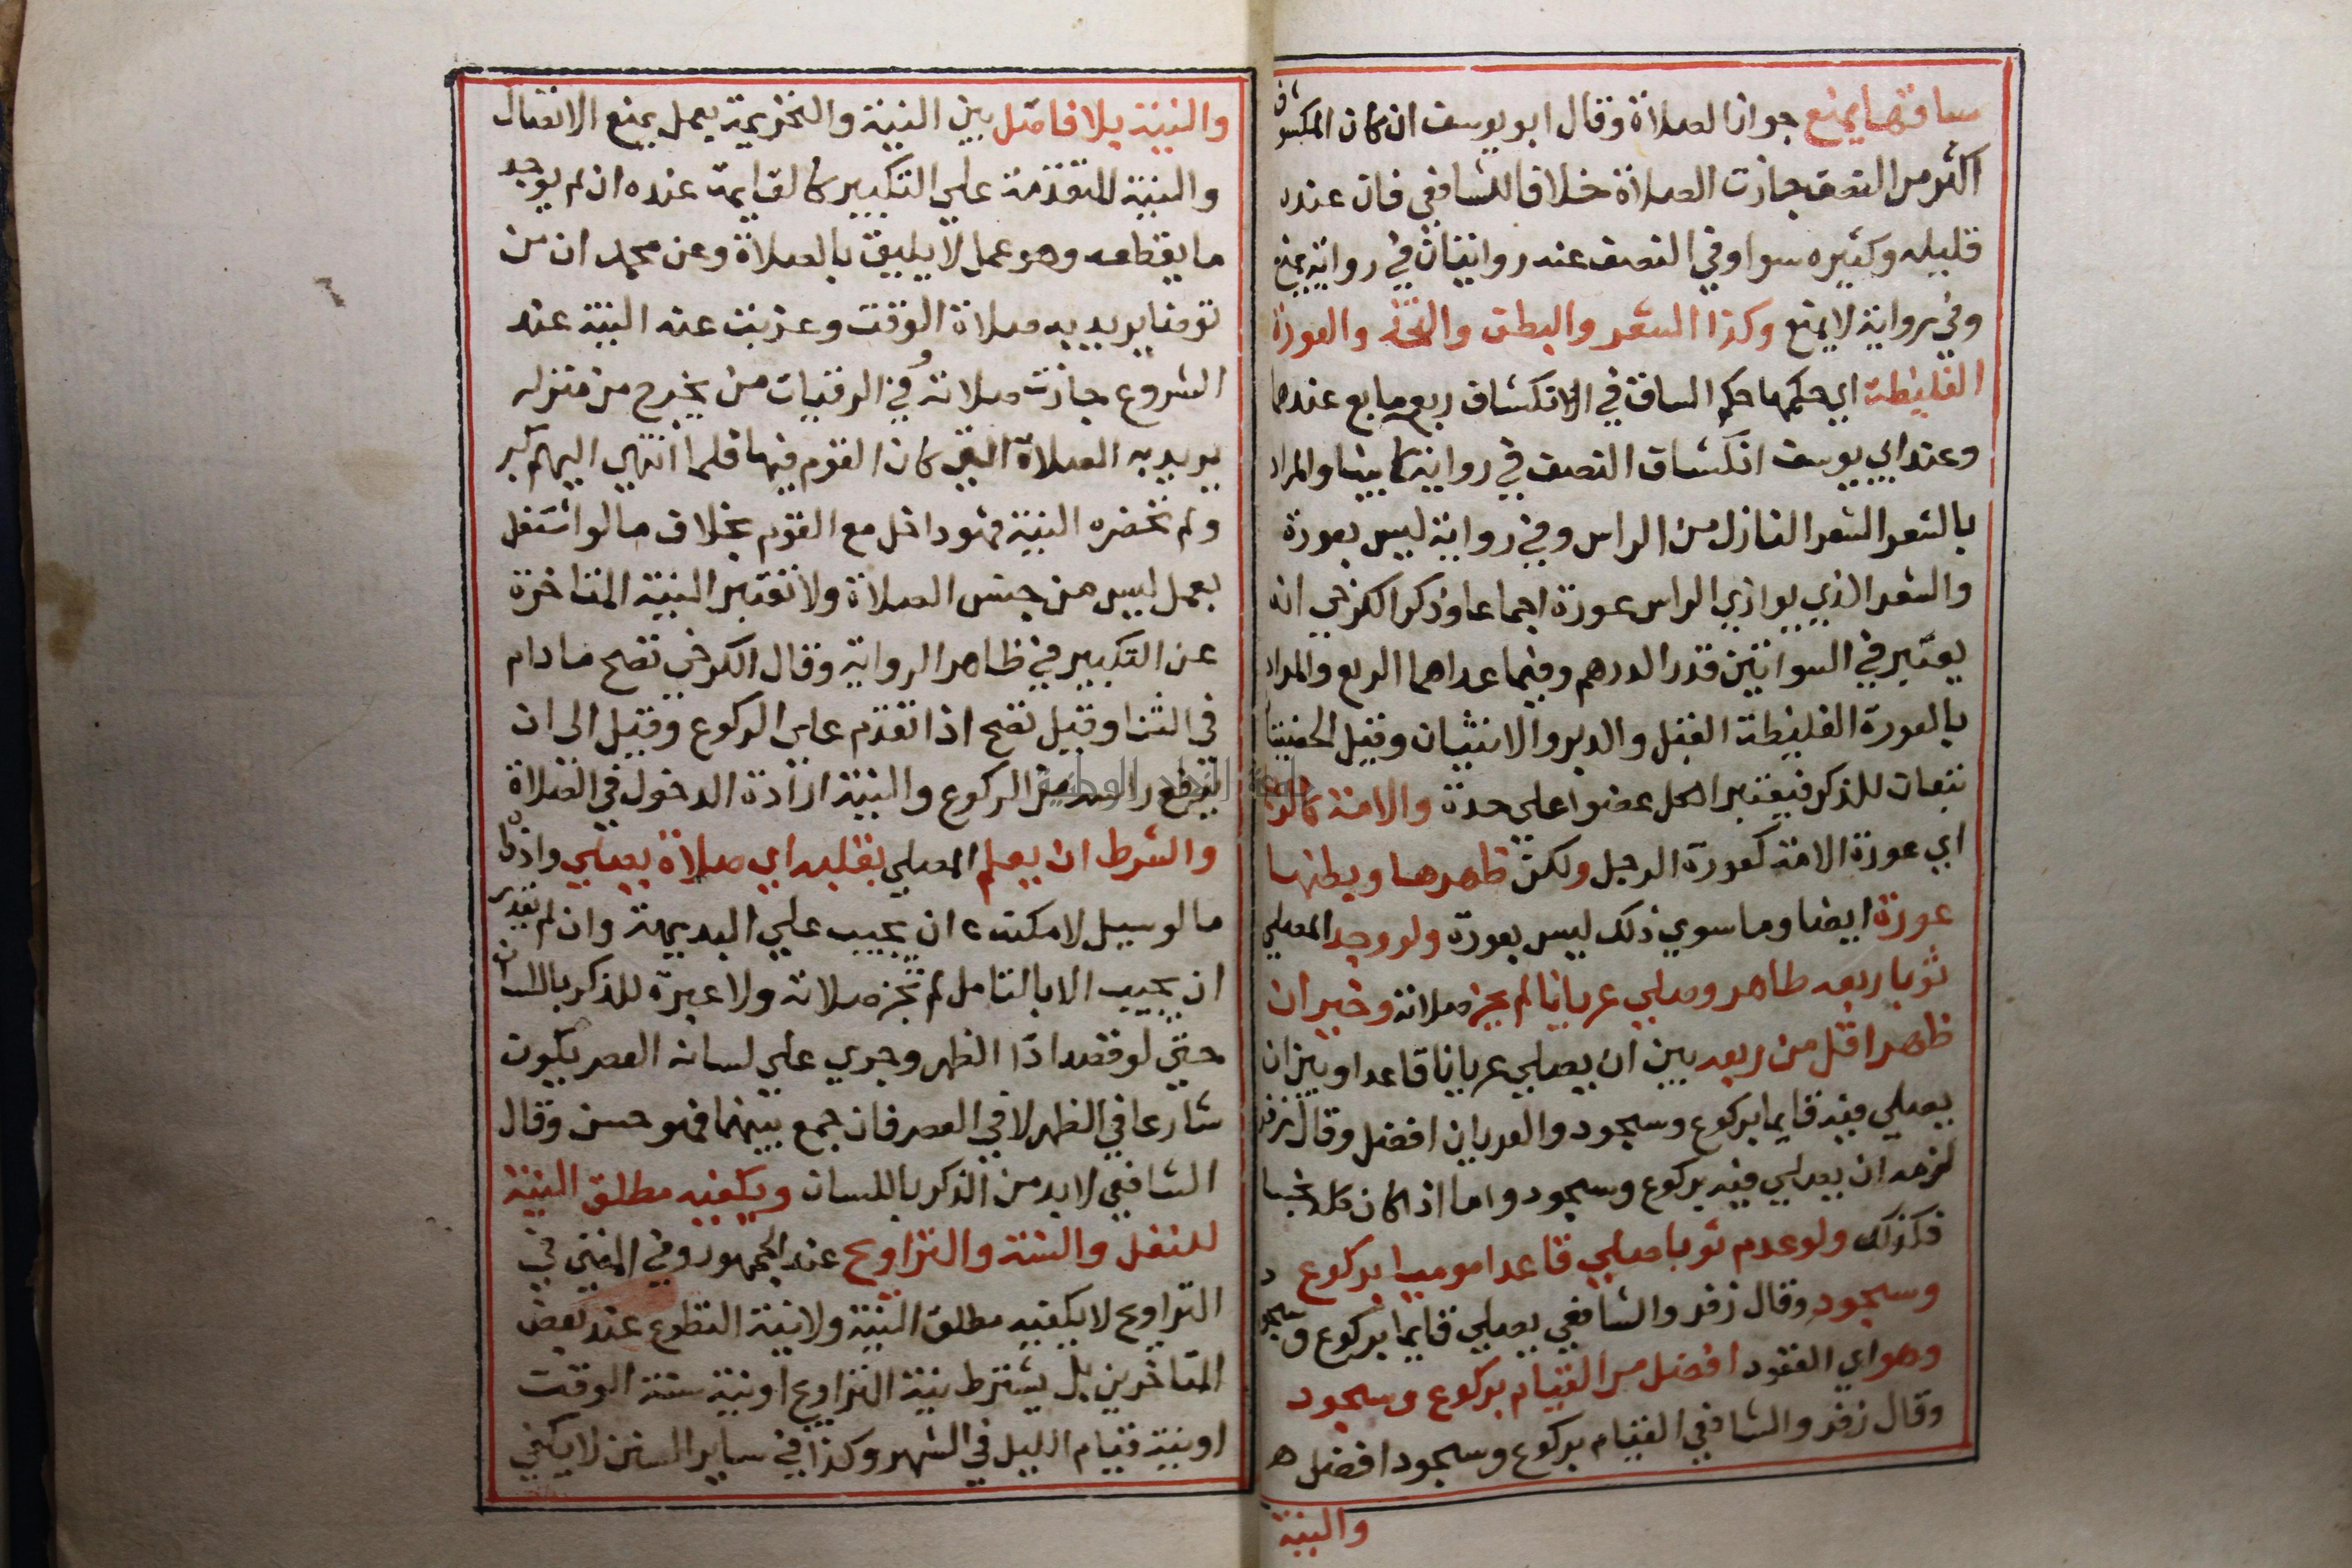 ساقها يمنع جواز الصلاة وقال ابو يوسف ان كان المكشوف
اكثر من النصف جازت الصلاة خلافا للشافعي فان عنده
قليله وكثيره سوا وفي النصف عنه روايتان في رواية يمنع
وفي رواية لا يمنع وكذا الشعر والبطن والفخذ والعورة
الغليظة اي حكمها حكم الساق في الانكشاف ربع مابع عندهما
وعند ابي يوسف انكشاف النصف في رواية كما بينا والمراد
بالشعر الشعر النازل من الراس وفي رواية ليس بعورة
والشعر الذي يوازي الراس عورة اجماعا وذكر الكرخي انه
يعتبر في السواتين قدر الدرهم وفيما عداهما الربع والمراد
بالعورة الغليظة القبل والدبر والانثيان وقيل الخصيتا
تتبعان للذكر فيعتبر الكل عضوا علي حدة والامة كالر
اي عورة الامة كعورة الرجل ولكن ظهرها وبطنها
عورة ايضا وما سوي ذلك ليس بعورة ولو وجد المصلي
ثوبا ربعه طاهر وصلي عريانا لم يجز صلاته وخير ان
ظهر اقل من ربعه بين ان يصلي عريانا قاعدا وبين ان
يصلي فيه قايما بركوع وسجود والعريان افضل وقال زفر
لزمه ان يصلي فيه بركوع وسجود واما اذا كان كله نجسا
فكذلك ولو عدم ثوبا صلي قاعدا موميا بركوع د
وسجود وقال زفر والشافعي يصلي قايما بركوع وسجود
وهو اي القعود افضل من القيام بركوع وسجود
وقال زفر والشافعي القيام بركوع وسجود افضل ه
والنية
والنية بلا فاصل بين النية والتحريمة بعمل يمنع الاتصال
والنية المتقدمة علي التكبير كالقايمة عنده ان لم يوجد
ما يقطعه وهو عمل لا يليق بالصلاة وعن محمد ان من
توضا يريد به صلاة الوقت وعزبت عنه النية عند
الشروع جازت صلاته وفي الرقيات من يخرج من منزله
يريد به الصلاة التي كان القوم فيها فلما انتهي اليهم كبر
ولم تحضره النية فهو داخل مع القوم بخلاف ما لو اشتغل
بعمل ليس من جنس الصلاة ولا تعتبر النية المتاخرة
عن التكبير في ظاهر الرواية وقال الكرخي تصح ما دام
في الثنا وقيل تصح اذا تقدم علي الركوع وقيل الى ان
يرفع راسه من الركوع والنية ارادة الدخول في الصلاة
والشرط ان يعلم المصلي بقلبه اي صلاة يصلي وادناها
ما لو سيل لامكنه ان يجيب علي البديهة وان لم يقدر
ان يجيب الا بالتامل لم تجز صلاته ولا عبرة للذكر باللسان
حتي لو قصد اذا الظهر وجري علي لسانه العصر يكون
شارعا في الظهر لا في العصر فان جمع بينهما فهو حسن وقال
الشافعي لا بد من الذكر باللسان ويكفيه مطلق النية
للنفل والسنة والتراويح عند الجمهور وفي المغني في
التراويح لا يكفيه مطلق النية ولا نية التطوع عند بعض
المتاخرين بل يشترط نية التراويح او نية سنة الوقت
او نية قيام الليل في الشهر وكذا في ساير السنن لا يكفي
جامعة النجاح الوطنية